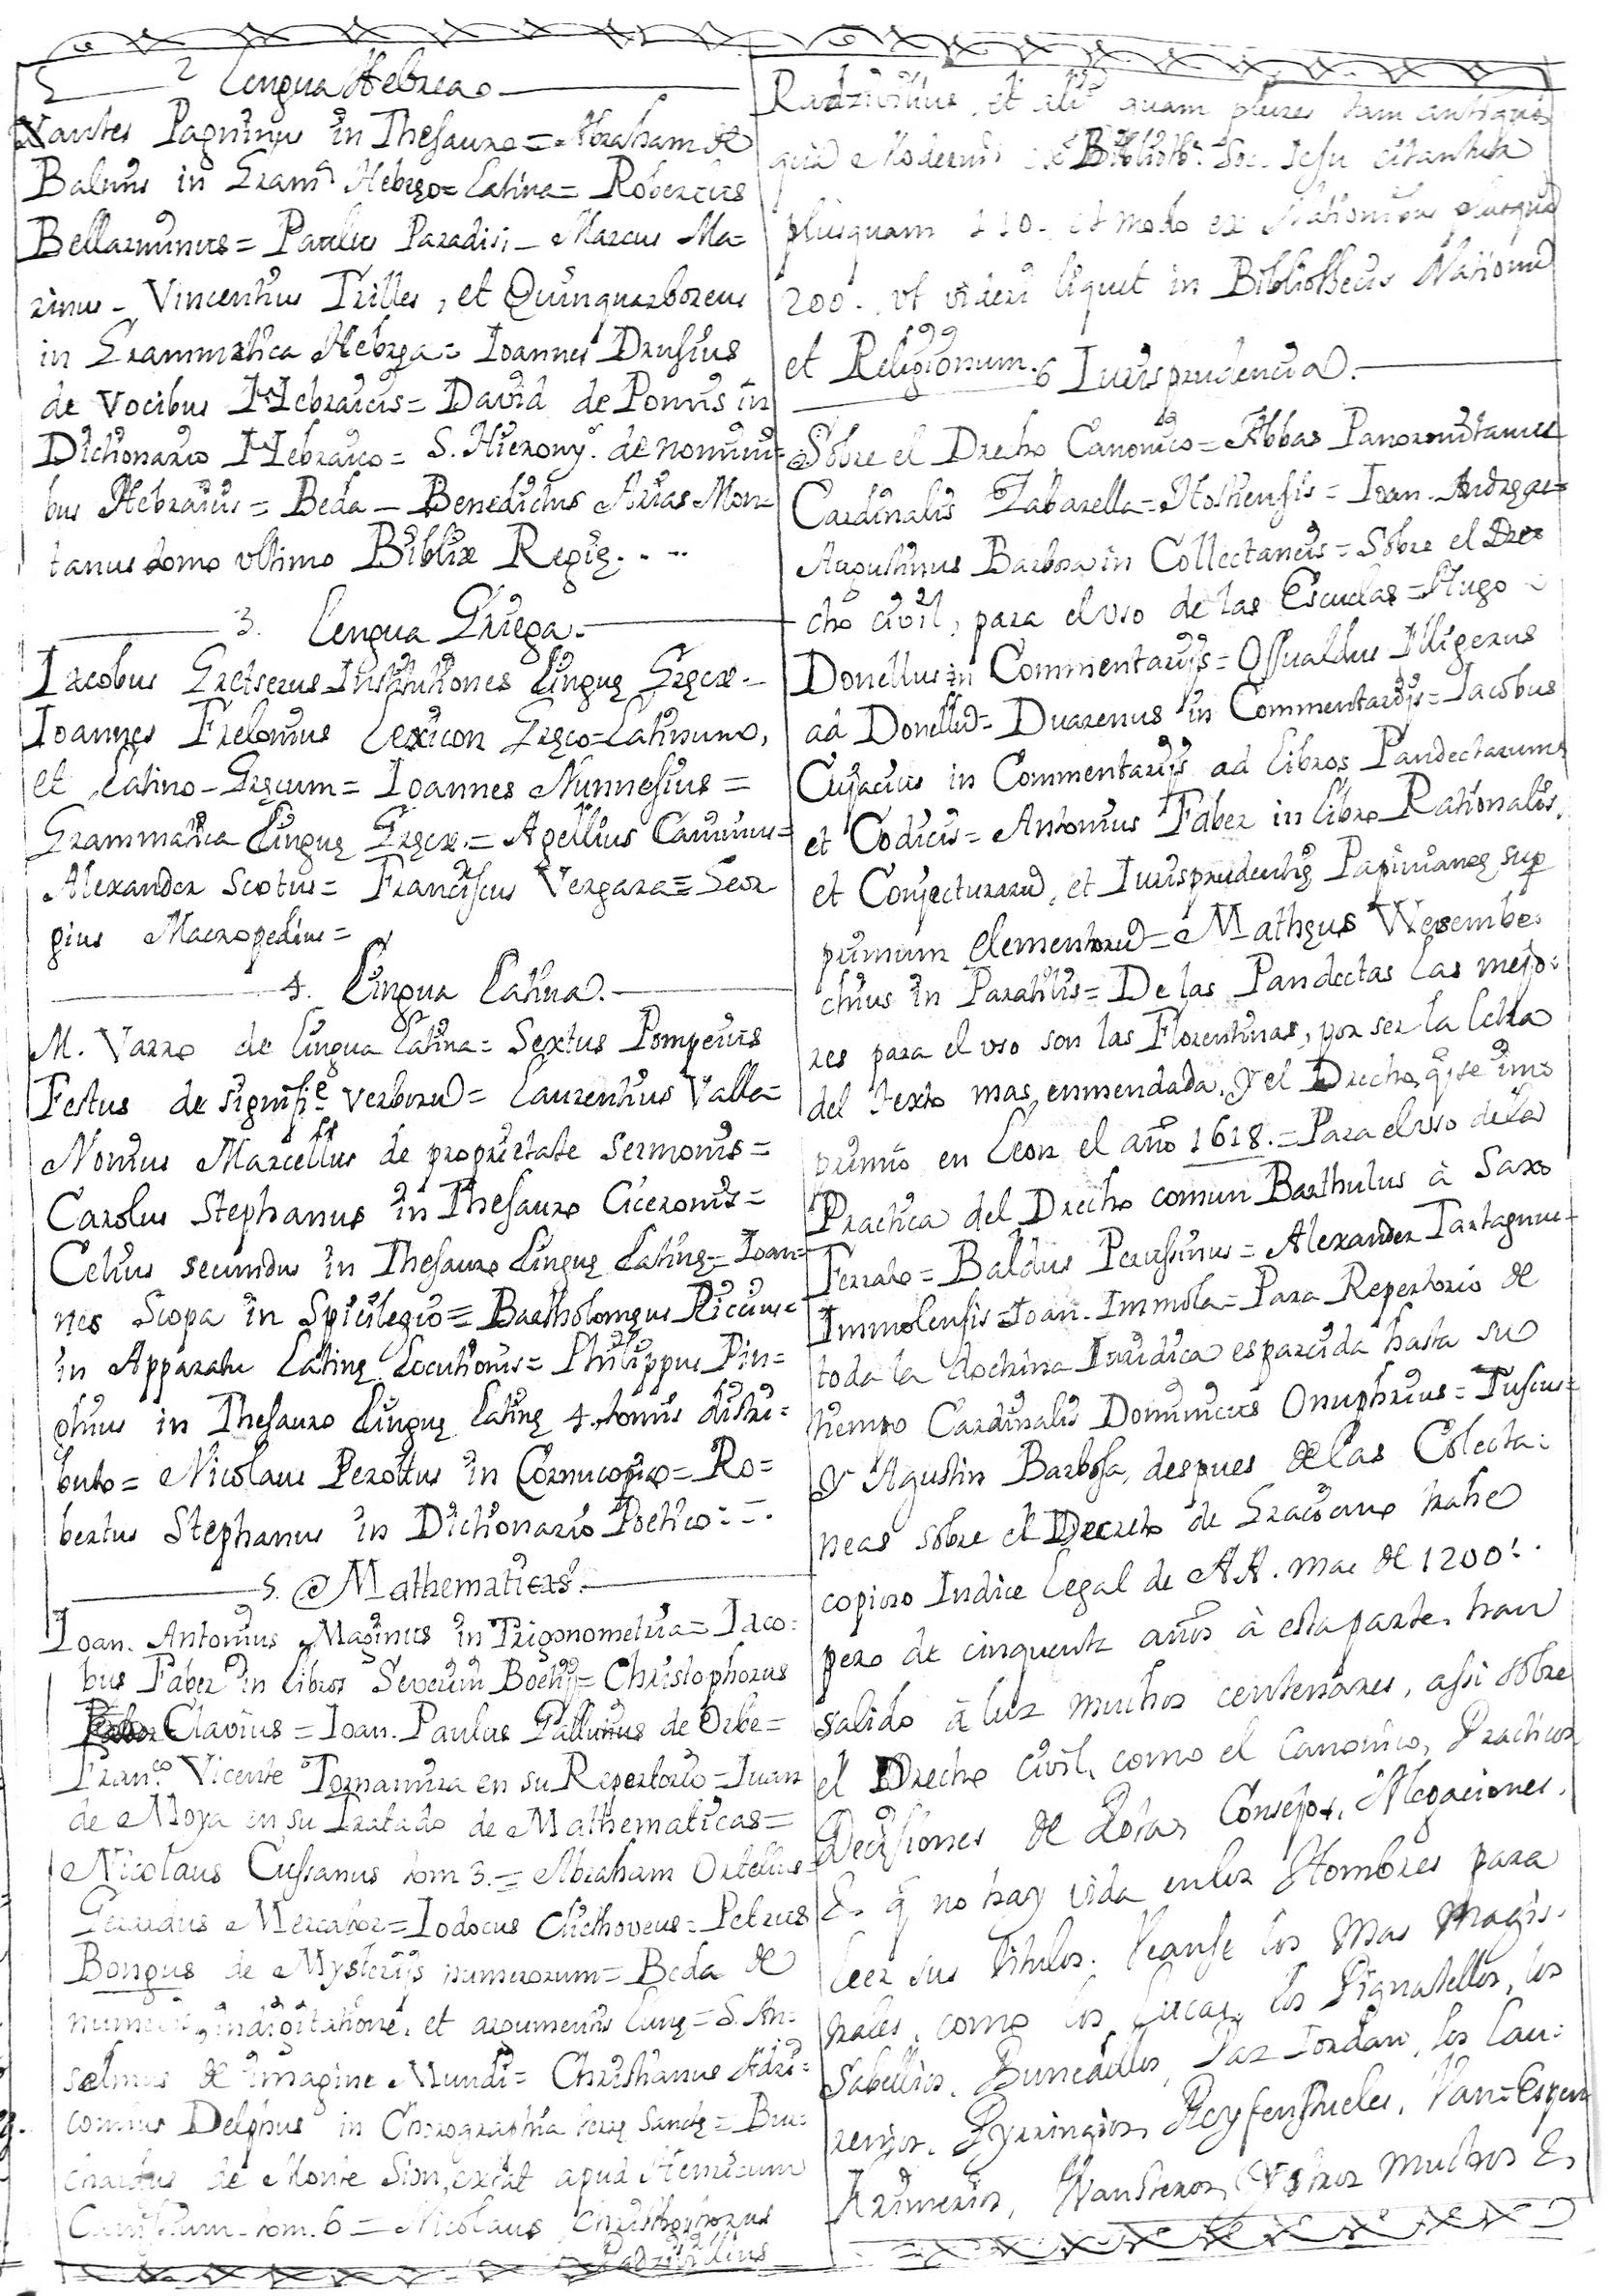 2 Lengua Hebrea.
Xantes Pagninus in Thesauro = Abraham de
Balmis in Gramª Hebręo = Latina = Robertus
Bellarminus = Paulus Paradisi - Marcus Ma=
rinus - Vincentius Trilles, et Quinquarboreus
in Grammatica Hebręa = Ioannes Drusius
de Vocibus Hebraicis = David de Pomis in
Dictionario Hebraico = S. Hierony.º de nomini=
bus Hebraicis = Beda - Benedictus Arias Mon-
tanus tomo vltimo Bibliæ Regię. . --
3. Lengua Griega.
Iacobus Gretserus Institutiones Linguę Gręcæ -
Ioannes Frelonius Lexicon Gręco=Latinum,
et Latino-Gręcum = Ioannes Nunnesius =
Grammatica Linguę Gręcæ. = Agellius Caninius=
Alexander Scotus = Franciscus Vergara = Geor
gius Macropedius =
4. Lingua Latina.
M. Varro de lingua Latina = Sextus Pompeius
Festus de signific.e verborū = Laurentius Valla=
Nonius Marcellus de proprietate sermonis =
Carolus Stephanus in Thesauro Ciceronis =
Celius secundus in Thesauro Linguę Latinę = Ioan=
nes Scopa in Spicilegio = Bartholomęus Riccius=
in Apparatu Latinę Locutionis = Philippus Pin=
otius in Thesauro Linguę Latinę 4. tomis distri=
buto = Nicolaus Perottus in Cornucopię = Ro=
bertus Stephanus in Dictionario Poetico :-
5. Mathematicas.
Ioan. Antonius Maginus in Trigonometria = Iaco:
bus Faber in libros Severini Boetij = Christophorus
Clavius = Ioan. Paulus Gallucius de Orbe =
Fran.co Vicente Tornamira en su Repertorio = Juan
de Moya en su Tratado de Mathematicas =
Nicolaus Cussanus tom 3. = Abraham Ortellius
Gerardus Mercator = Iodocus Clicthoveus = Petrus
Bongus de Mysterijs numerorum = Beda de
indigitatione, et argumentis lunę = S. An:
selmus de imagine Mundi = Christianus Adri=
comius Delphus in Chorographia terrę Sanctę = Bur:
chardus de Monte Sion, extat apud Henricum
Canisium tom. 6 = Nicolaus Christophorus
Radzivilius
Radzivilius, et alij quam plures tam antiqui
quā Moderni ex Biblioth. Soc. Iesu citantur
plusquam 110. et modo ex Nationibus
200. vt videri liquet in Bibliothecis Nationū
et Religionum.
6 Iurisprudencia.
Sobre el Drecho Canonico = Abbas Panormitanus
Cardinalis Zabarella = Hostiensis = Ioan. Andreæ =
Augustinus Barbosa in Collectaneis = Sobre el Dre
cho civil, para el vso de las Escuelas = Hugo
Donellus in Commentarijs = Ossualdus Illigerus
ad Donellū = Duarenus in Commentarijs = Iacobus
Cujacius in Commentarijs ad libros Pandectarum
et Codicis = Antonius Faber in libro Rationalis,
et Conjecturarū, et Iurisprudentię Papinianeę sup
primum elementorū = Mathęus Wesembe.
chius in Paratitlis = De las Pandectas las mejo:
res para el vso son las Florentinas, por ser la letra
del texto mas enmendada. y el Drecho, q̄ se im
primió en Leon el año 1618. = Para el vso de la
Practica del Drecho comun Barthulus à Saxo
Ferrato = Baldus Perusinus = Alexander Tartagnus
Immolensis = Ioan. Immola = Para Repertorio de
toda la doctrina Iuridica esparcida hasta su
tiempo Cardinalis Dominicus Onuphrius = Tuscus =
y Agustin Barbosa, despues de las Colecta:
neas sobre el Decreto de Graciano trahe
copioso Indice Legal de AA. mas de 1200:.
pero de cinquenta años à esta parte han
salido à luz muchos centenares, assi sobre
el Drecho civil, como el Canonico, Practicos
Decisiones de Rotas, Consejos, Alegaciones,
&. q̄ no hay vida en los Hombres para
leer sus titulos. Veanse los mas Magis.
trales, como los Lucas, los Pignatellos, los
Sabellios, Paz Iordan, los Lau:
renios, Pyrringios, Reyfenstueles, Van-Espen
Krimerios, Wansteros, y otros muchos &.